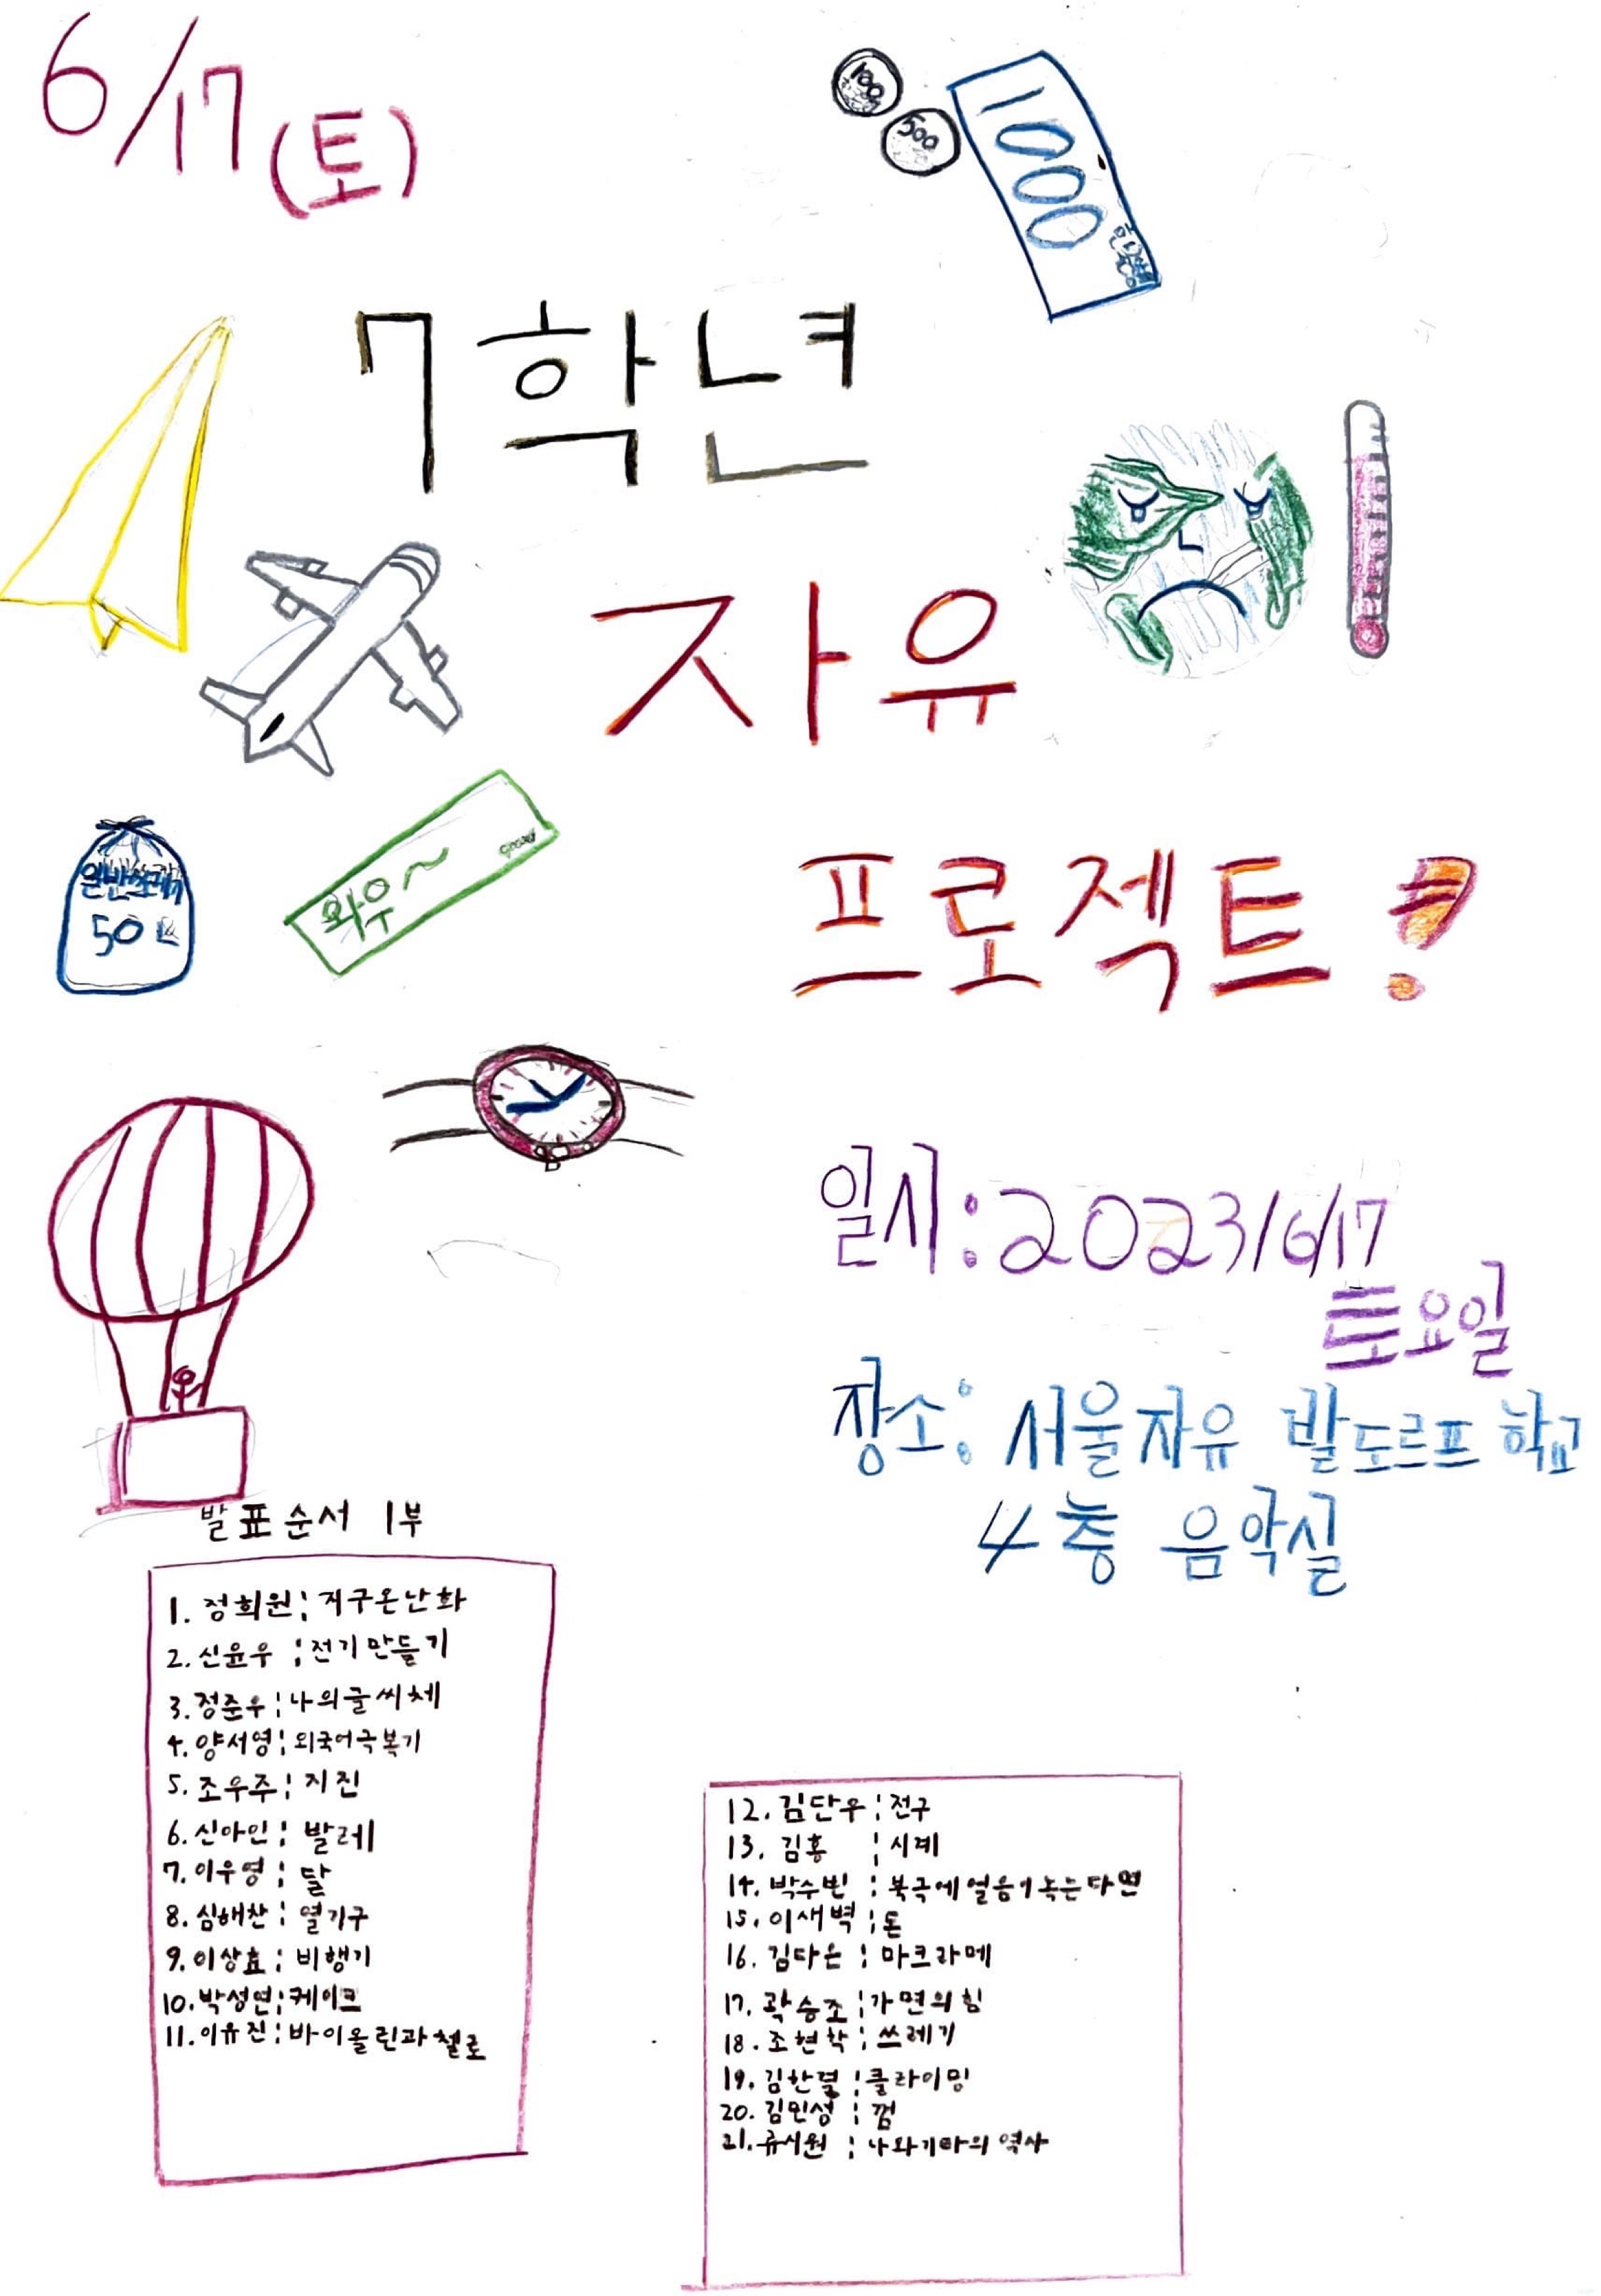 6/17(토)
100
500
1000
7학년
자유
일반쓰레기
50L
와우~
프로젝트!
일시:2023/6/17
토요일
장소: 서울자유 발도르프 학교
4층 음악실
발표순서 1부
1. 정희원; 지구온난화
2. 신윤우 ; 전기만들기
3. 정준우; 나의글씨체
4. 양서영; 외국어극복기
5. 조우주; 지진
6. 신아인; 발레
7. 이우영; 달
8. 심해찬; 열기구
9. 이상효; 비행기
10. 박성연; 케이크
11. 이유진; 바이올린과 첼로
12. 김단우; 전구
13. 김홍 ; 시계
14. 박수빈 ; 북극에얼음이녹는다면
15. 이새벽; 돈
16. 김다은 ; 마크라메
17. 곽승조; 가면의힘
18. 조현학; 쓰레기
19. 김한결; 클라이밍
20. 김민성 ; 껌
21. 류시원 ; 나와기타의 역사